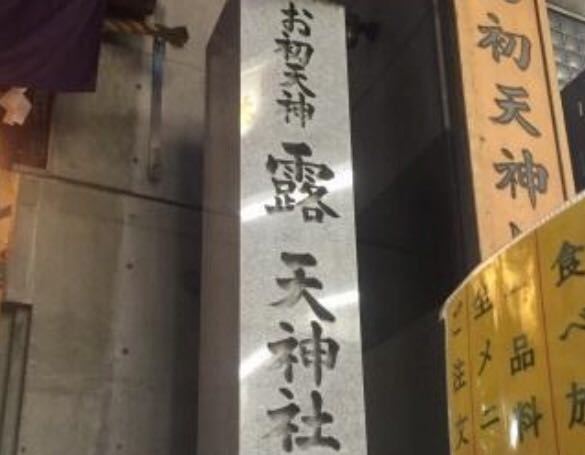 お初天神
露天神社
初天神
食べ放
一品料
生メニ
ご注文